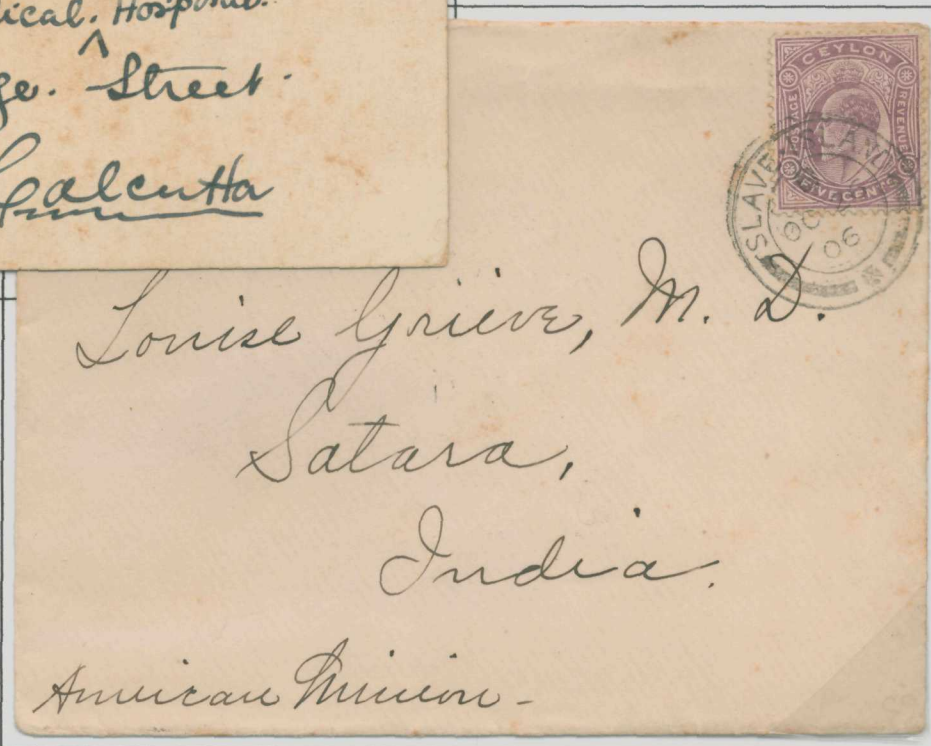 ical. Hospital.
^
ge. Street.
Calcutta
CEYLON
POSTAGE
REVENUE
FIVE CENTS
SLAVE ISLAND
OC
06
Louise Grieve, M. D.
Satara,
India.
American Mission -